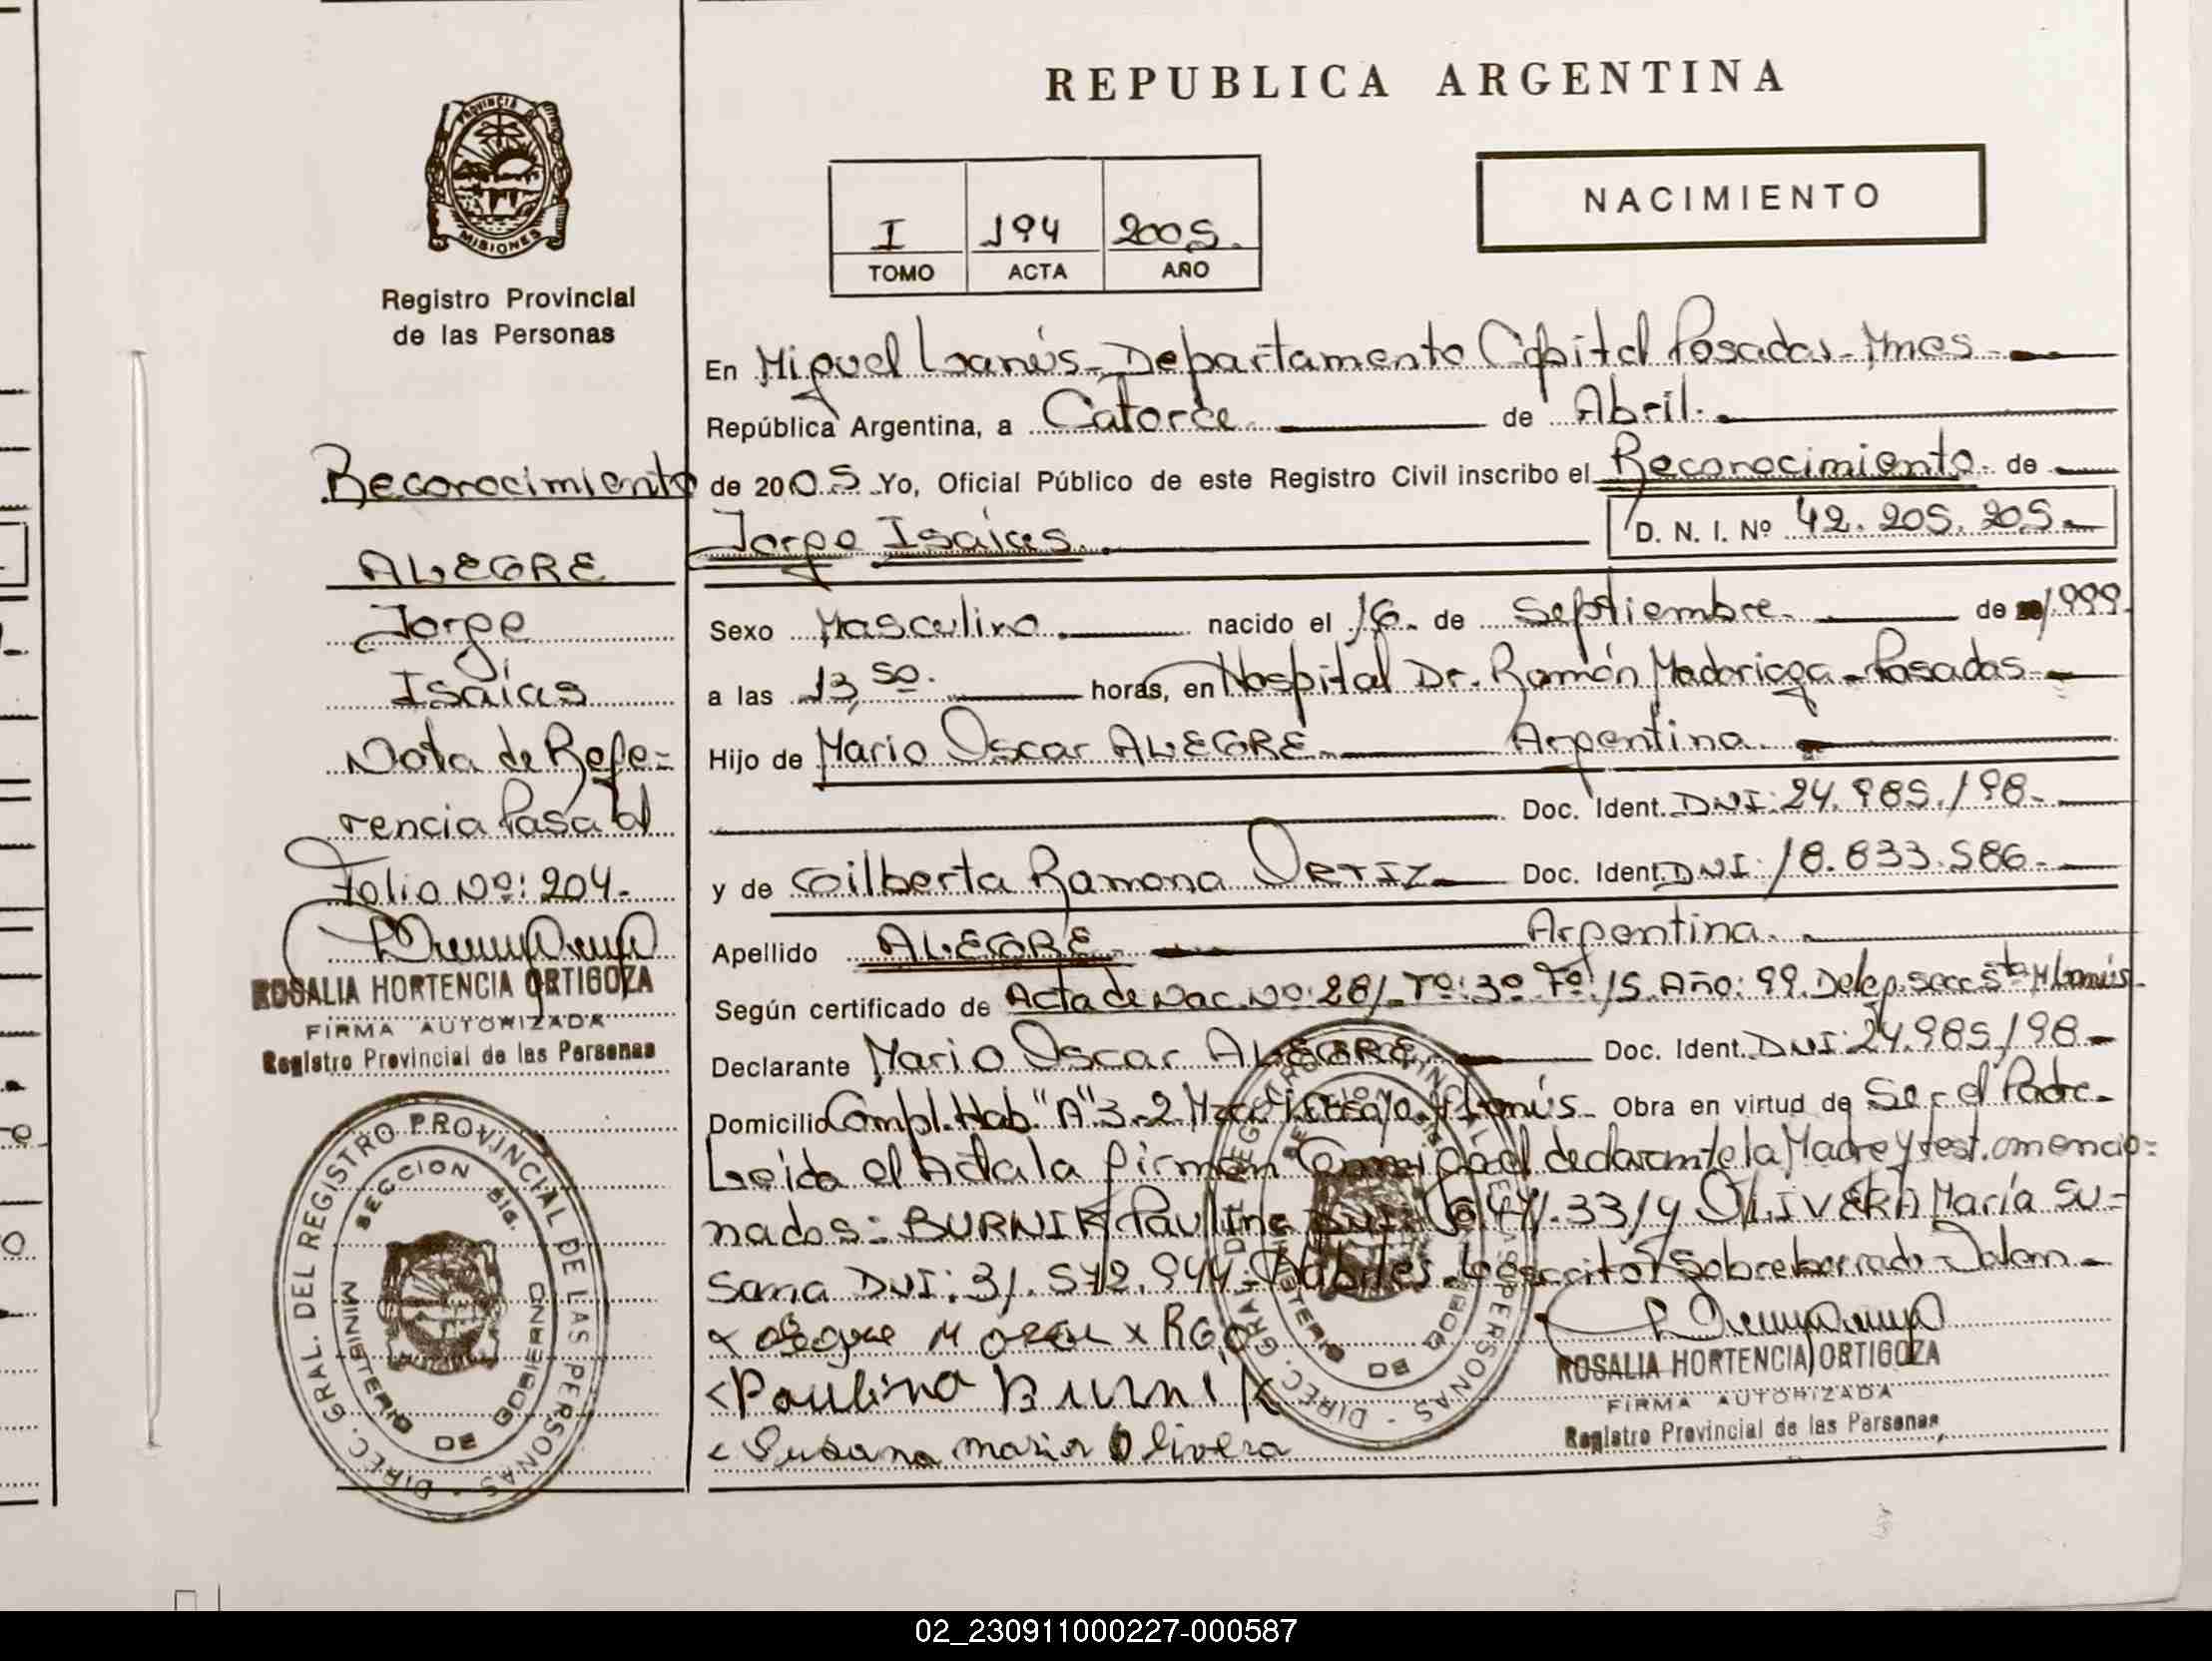 REPUBLICA ARGENTINA
PROVINCIA DE
MISIONES
Registro Provincial
de las Personas
I 194 2005.
TOMO ACTA AÑO
NACIMIENTO
Reconocimiento
ALEGRE
Jorge
Isaías
Nota de Refe=
rencia Pasa al
Folio Nº: 204.
ROSALIA HORTENCIA ORTIGOZA
FIRMA AUTORIZADA
Registro Provincial de las Personas
DIREC. GRAL. DEL REGISTRO PROVINCIAL DE LAS PERSONAS -
SECCION DIG.
MINISTERIO DE GOBIERNO
En Miguel Lanús - Departamento Capital Posadas - Mnes -
República Argentina, a Catorce de Abril.
de 2005 Yo, Oficial Público de este Registro Civil inscribo el Reconocimiento de
Jorge Isaías. D. N. I. Nº 42.205.205.
Sexo Masculino. nacido el 16. de Septiembre. de 1999.
a las 13,50. horas, en Hospital Dr. Ramón Madariaga - Posadas -
Hijo de Mario Oscar ALEGRE. Argentina.
Doc. Ident. DNI: 24.985.198.
y de Gilberta Ramona ORTIZ Doc. Ident. DNI: 18.833.586.
Apellido ALEGRE Argentina.
Según certificado de Acta de Nac. Nº: 281. Tº: 3º Fº: 15. Año: 99. Deleg. Secc. 5ta M Lanús.
Declarante Mario Oscar ALEGRE Doc. Ident. DNI: 24.985.198
Domicilio Compl. Hab. "A" 3-2 Mza Lanús. Obra en virtud de Ser el Padre.
Leída el Acta la firman Conmigo el declarante la Madre y test. omencio=
nados: BURNIK Paulina DNI: OLIVERA María Su=
sana DNI: 31.572.944. Hábiles. Lo escrito Sobreborrado Valen.
x Alegre M Oscar x RGO
<Paulina Burnik
< Susana maria Olivera
DIREC. GRAL. DEL REGISTRO PROVINCIAL DE LAS PERSONAS -
MINISTERIO DE GOBIERNO
ROSALIA HORTENCIA ORTIGOZA
FIRMA AUTORIZADA
Registro Provincial de las Personas
02_230911000227-000587